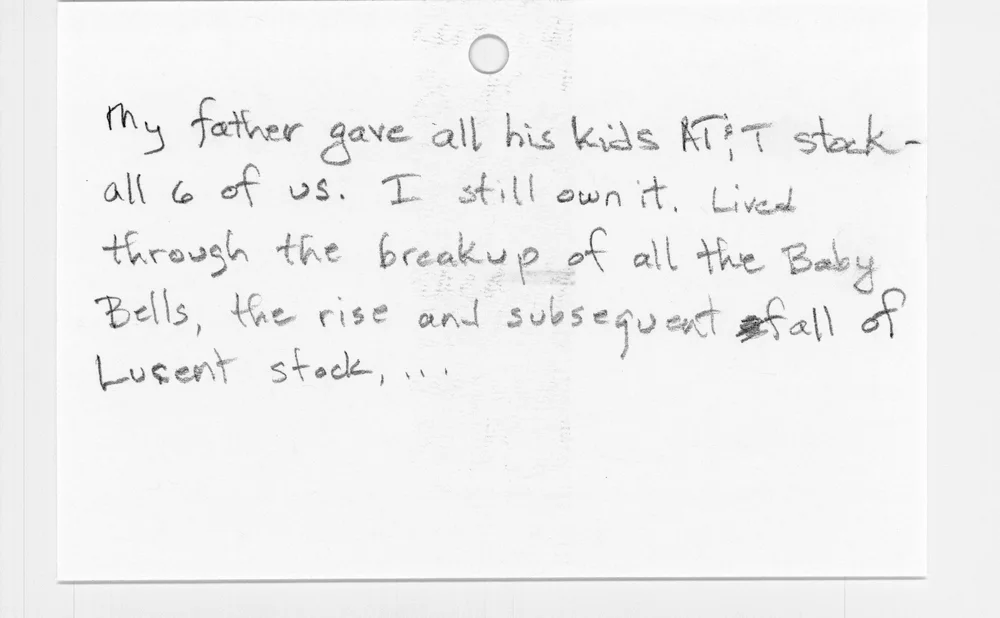 My father gave all his kids AT&T stock-
all 6 of us. I still own it. Lived
through the breakup of all the Baby
Bells, the rise and subsequent fall of
Lucent stock, ...